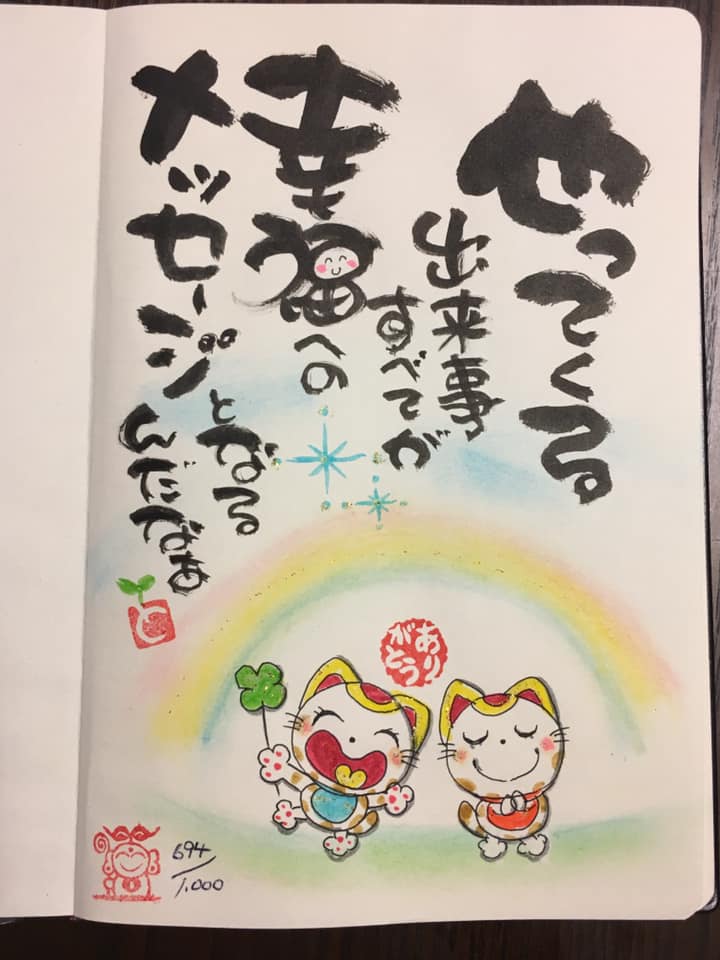 やってくる
出来事
すべてが
幸福への
メッセージ
となる
んだなぁ
あり
がとう
694/1.000